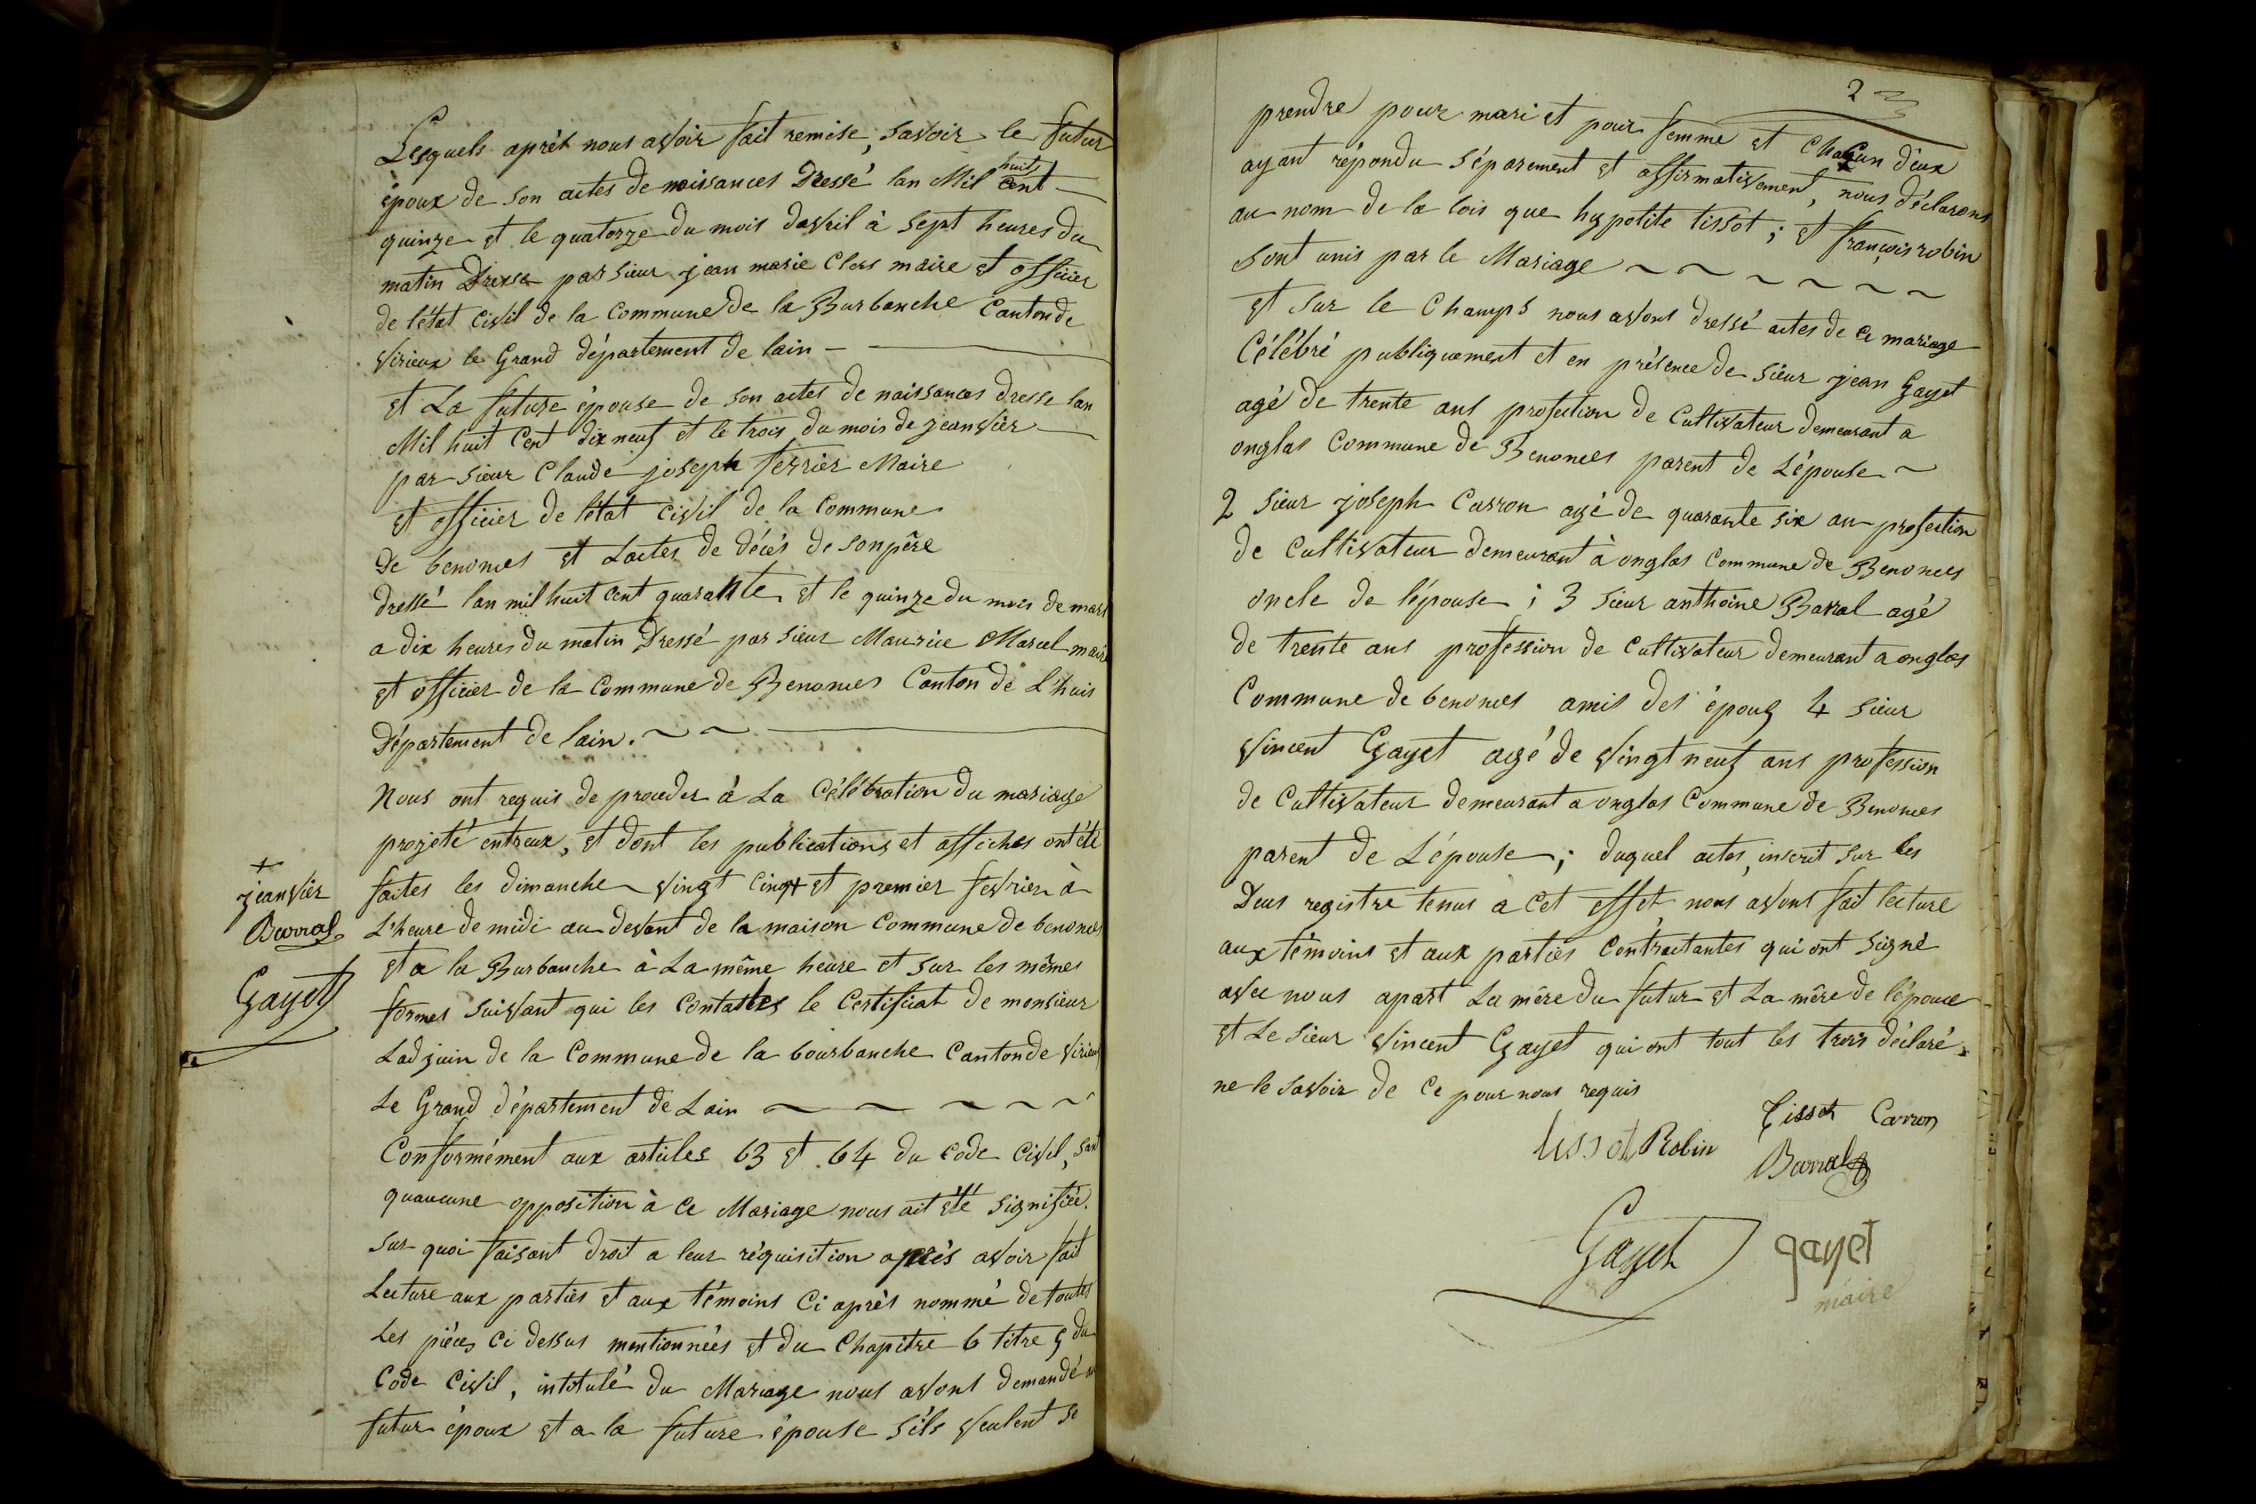 Lesquels aprèt nous avoir fait remise, savoir le futur
époux de son actes de naissances Dressé lan Mil huits cent
quinze et le quatorze du mois davril à sept heures du
matin Dresse par sieur jean marie Clers maire et officier
de létat civil de la commune de la Burbanche Canton de
virieux le Grand département de lain
et La future épouse de son actes de naissances dresse lan
Mil huit Cent dix neuf et le trois du mois de jeanvier
par sieur Claude joseph ferrier Maire
et officier de létat civil de la Commune
De benonces et Lactes de décés de son père
dressé lan mil huit cent quarante et le quinze du mois de mars
a dix heures du matin Dressé par sieur Maurice Marcel maire
et officier de la Commune de Benonces Canton de L'huis
Département de lain. ~ ~
Nous ont requis de proceder à La Célébration du mariage
projeté entreux, et dont les publications et affiches ont été
faites les dimanche vingt cinq + et premier fevrier à
+
jeanvier
Barral
Gayet
L'heure de midi au devant de la maison Commune de benonces
et a la Burbanche à La même heure et sur les mêmes
formes suivant qui les contastes le Certificat de monsieur
Ladjuin de la Commune de la bourbanche Canton de virieux
Le Grand département de Lain ~ ~ ~ ~ ~
Conformément aux articles 63 et 64 du Code Civil, sans
quaucune opposition à Ce Mariage nous ait été signifiée.
Sur quoi faisant droit a leur réquisition après avoir fait
Lecture aux parties et aux témoins Ci après nommé de toutes
Les pièces Ci dessus mentionnées et du Chapitre 6 titre 5 du
Code Civil, intitulé du Mariage nous avons demandé au
futur époux et a la future épouse s'ils veulent se
2
prendre pour mari et pour femme et Chacun d'eux
ayant répondu séparement et affirmativement, nous déclarons
au nom de la lois que hypolite tissot ; et françois robin
sont unis par le Mariage ~ ~ ~ ~ ~ ~
et sur le Champs nous avons dressé actes de Ce mariage
Célébré publiquement et en présence de sieur jean Gayet
agé de trente ans profection de Cultivateur demeurant a
onglas Commune de Benonces parent de L'épouse ~
2 sieur joseph Carron agé de quarante six an profection
de Cultivateur demeurant à onglas Commune de Benonces
oncle de l'épouse ; 3 sieur anthoine Barral agé
de trente ans profession de Cultivateur demeurant a onglas
Commune de benonces amis des époux 4 sieur
Vincent Gayet agé de vingt neuf ans profession
de Cultivateur demeurant a onglas Commune de Benonces
parent de L'épouse ; duquel actes, inscrit sur les
Deus registre tenus a Cet effet nous avons fait lecture
aux témoins et aux parties Contractantes qui ont signé
avec nous apart La mère du futur et La mère de l'épouce
et Le sieur Vincent Gayet qui ont tout les trois déclaré
ne le savoir de Ce pour nous requis
Tissot Carron
tissot Robin
Barral
Gayet gayet
maire